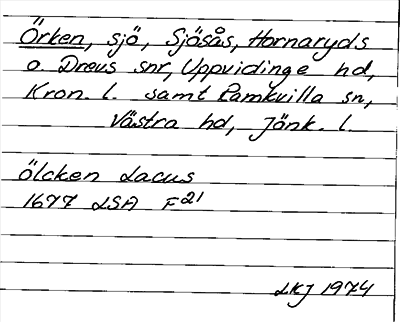 Örken, sjö, Sjösås, Hornaryds
o Drevs snr, Uppvidinge hd,
Kron. l. samt Ramkvilla sn,
Västra hd, Jönk. l.
Ölcken Lacus
1677 LSA F21
LKJ 1974